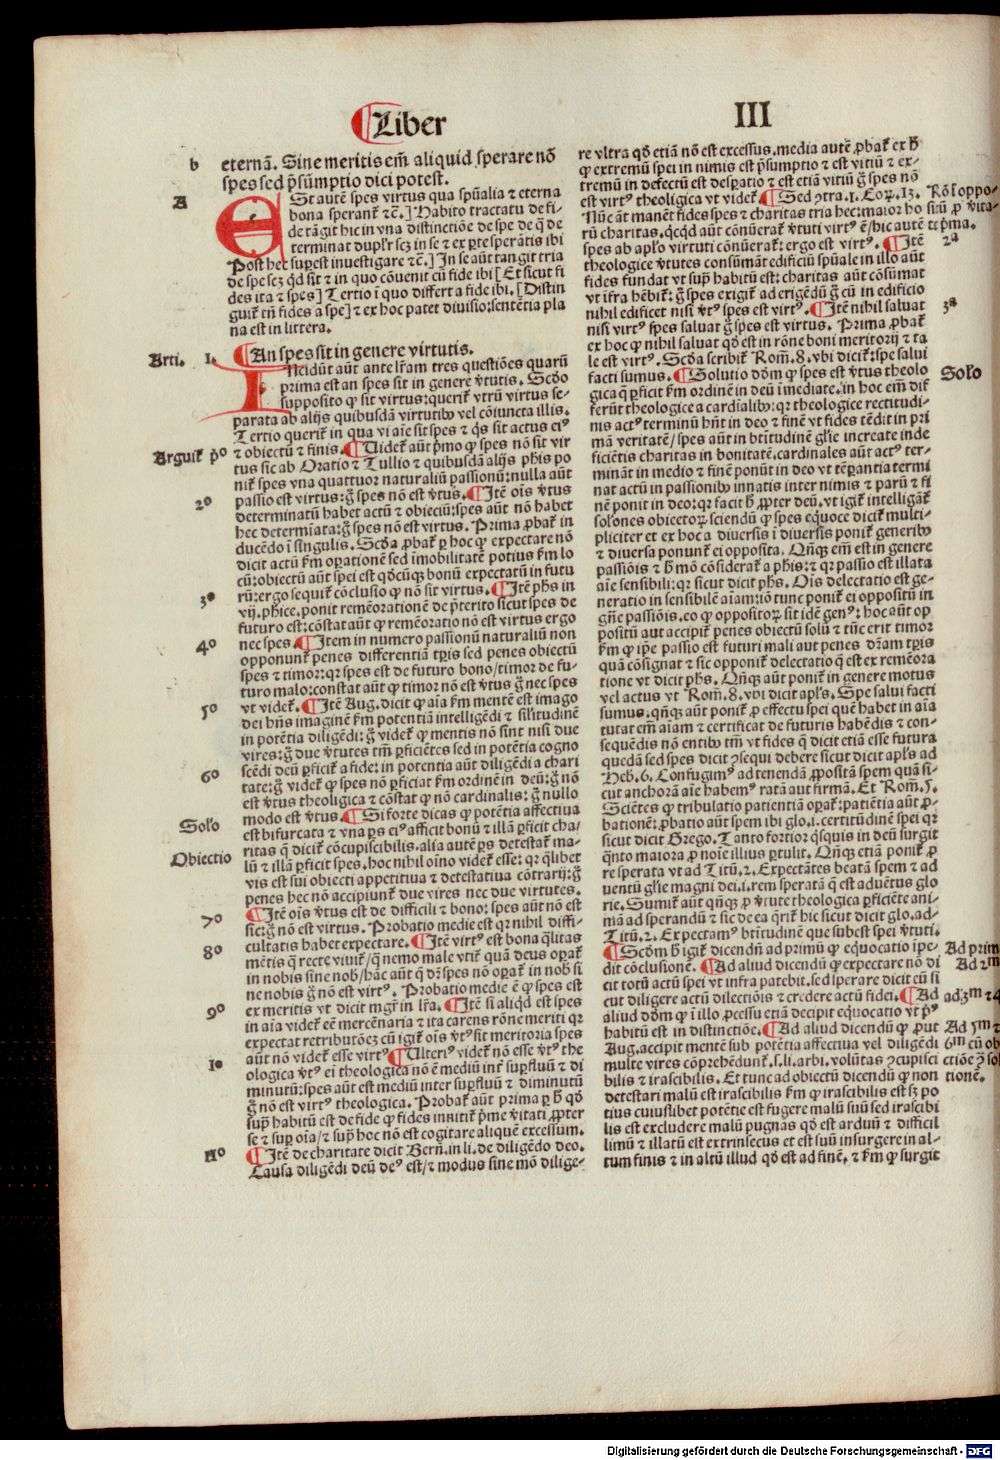 ¶Liber
III
b eternā. Sine meritis em̄ aliquid sperare nō
spes sed p̄sūmptio dici potest.
A ESt autē spes virtus qua spūalia ⁊ eterna
bona sperant̄ ⁊c̄.] Habito tractatu de fi-
de tāgit hic in vna distinctiōe de spe de q̄ de
terminat dupl'r scꝫ in se ⁊ ex ꝑte sperātis ibi
Post hec suꝑest inuestigare ⁊c̄.] In se aūt tangit tria
de spe scꝫ qd̄ sit ⁊ in quo cōuenit cū fide ibi [Et sicut fi
des ita ⁊ spes] Tertio ī quo differt a fide ibi. [Distin
guit̄ cū fides a spe] ⁊ ex hoc patet diuisio: sentētia pla
na est in littera.
Arti. I. ¶An spes sit in genere virtutis.
INcidūt aūt ante lr̄am tres questiōes quarū
prima est an spes sit in genere v̄tutis. Scd̄o
supposito ꝙ sit virtus: querit̄ vtrū virtus se-
parata ab alijs quibusdā virtutibꝰ vel cōiuncta illis.
Tertio querit̄ in qua vi aīe sit spes ⁊ q̄s sit actus eiꝰ
Arguit̄ p̄º ⁊ obiectū ⁊ finis. ¶Uidet̄ aūt p̄mo ꝙ spes nō sit vir
tus sic ab Oratio ⁊ Tullio ⁊ quibusdā alijs phis po
nit̄ spes vna quattuor naturaliū passionū: nulla aūt
passio est virtus: g̊ spes nō est v̄tus. ¶Itē oīs v̄tus
2º determinatū habet actū ⁊ obiectū: spes aūt nō habet
hec determīata: g̊ spes nō est virtus. Prima ꝓbat̄ in
ducēdo ī singulis. Scd̄a ꝓbat̄ ꝑ hoc ꝙ expectare nō
dicit actū km̄ oꝑationē sed īmobilitatē potius km̄ lo
cū: obiectū aūt spei est qd̄cūqꝫ bonū expectatū in futu
rū: ergo sequit̄ cōclusio ꝙ nō sit virtus. ¶Itē phs in
3º vij. phice. ponit remēorationē de p̄terito sicut spes de
futuro est: cōstat aūt ꝙ remēoratio nō est virtus ergo
4º nec spes. ¶Item in numero passionū naturaliū non
opponunt̄ penes differentiā tꝑis sed penes obiectū
spes ⁊ timor: qꝛ spes est de futuro bono/ timor de fu-
turo malo: constat aūt ꝙ timor nō est v̄tus g̊ nec spes
5º vt videt̄. ¶Itē Aug. dicit ꝙ aīa km̄ mentē est imago
dei hn̄s imaginē km̄ potentiā intelligēdi ⁊ silitudinē
in potētia diligēdi: g̊ videt̄ ꝙ mentis nō sint nisi due
vires: g̊ due v̄tutes tm̄ ꝑficiētes sed in potētia cogno
scēdi deū ꝑficit̄ a fide: in potentia aūt diligēdi a chari
6º tate: g̊ videt̄ ꝙ spes nō ꝑficiat km̄ ordinē in deū: g̊ nō
est v̄tus theologica ⁊ cōstat ꝙ nō cardinalis: g̊ nullo
modo est v̄tus. ¶Si forte dicas ꝙ potētia affectiua
Solo est bifurcata ⁊ vna ꝑs eiꝰ afficit bonū ⁊ illā ꝑficit cha/
ritas q̄ dicit̄ cōcupiscibilis. alia autē ꝑs detestat̄ ma-
Obiectio lū ⁊ illā ꝑficit spes. hoc nihil oīno videt̄ esse: qꝛ q̄libet
vis est sui obiecti appetitiua ⁊ detestatiua cōtrarij: g̊
penes hec nō accipiunt̄ due vires nec due virtutes.
7º ¶Itē oīs v̄tus est de difficili ⁊ bono: spes aūt nō est
sic: g̊ nō est virtus. Probatio medie est qꝛ nihil diffi-
8º cultatis habet expectare. ¶Itē virtꝰ est bona q̄litas
mētis q̄ recte viuit̄/ q̄ nemo male vtit̄ quā deus oꝑat̄
in nobis sine nob̄/ hāc aūt q̄ dr̄ spes nō oꝑat̄ in nob̄ si
ne nobis g̊ nō est virtꝰ. Probatio medie ē ꝙ spes est
9º ex meritis vt dicit mgr̄ in lr̄a. ¶Itē si aliqd̄ est spes
in aīa videt̄ eē mercēnaria ⁊ ita carens rōne meriti qꝛ
expectat retributōeꝫ cū igit̄ oīs vtꝰ sit meritoria spes
aūt nō videt̄ esse virtꝰ ¶Ulteriꝰ videt̄ nō esse v̄tꝰ the
10 ologica vtꝰ ei theologica nō ē mediū int̄ suꝑfluū ⁊ di
minutū: spes aūt est mediū inter suꝑfluū ⁊ diminutū
g̊ nō est virtꝰ theologica. Probat̄ aūt prima ꝑ h̄ qd̄
sup̄ habitū est de fide ꝙ fides innitit̄ p̄me v̄itati ꝓpter
se ⁊ suꝑ oīa/ ⁊ sup̄ hoc nō est cogitare aliquē excessum.
11º ¶Itē de charitate dicit Bern̄. in li. de diligēdo deo.
Causa diligēdi deū deꝰ est/ ⁊ modus sine mō dilige-
re vltra qd̄ etiā nō est excessus. media autē ꝓbat̄ ex h̄
ꝙ extremū spei in nimis est p̄sumptio ⁊ est vitiū ⁊ ex-
tremū in defectū est despatio ⁊ est etiā vitiū g̊ spes nō
est virtꝰ theologica vt videt̄ ¶Sed ꝯtra. I. Coꝝ. 13. Rōl' oppo-
Nūc āt manēt fides spes ⁊ charitas tria hec: maior ho sitū ꝓ v̄ita-
rū charitas. qcqd̄ aūt cōnūerat̄ v̄tuti virtꝰ ē/ hic autē te p̄ma.
spes ab aplo virtuti cōnūerat̄: ergo est virtꝰ. ¶Itē 2ª
theologice v̄tutes consūmāt edificiū spūale in illo aūt
fides fundat vt sup̄ habitū est: charitas aūt cōsūmat
vt īfra hēbit̄: g̊ spes exigit̄ ad erigēdū g̊ cū in edificio
nihil edificet nisi v̄tꝰ spes est virtꝰ. ¶Itē nihil saluat 3ª
nisi virtꝰ spes saluat g̊ spes est virtus. Prima ꝓbat̄
ex hoc ꝙ nihil saluat qd̄ est in rōne boni meritorij ⁊ ta
le est virtꝰ. Scd̄a scribit̄ Rom̄. 8. vbi dicit̄: spe salui
facti sumus. ¶Solutio dd̄m ꝙ spes est v̄tus theolo Solo
gica q̄ ꝑficit km̄ ordinē in deū īmediate. in hoc em̄ dif
ferūt theologice a cardīalibꝰ: qꝛ theologice rectitudi-
nis actꝰ terminū hn̄t in deo ⁊ finē vt fides tēdit in pri
mā veritatē/ spes aūt in btītudinē gl'ie increate inde
ficiētis charitas in bonitatē. cardinales aūt actꝰ ter-
mināt in medio ⁊ finē ponūt in deo vt tēꝑantia termi
nat actū in passionibꝰ innatis inter nimis ⁊ parū ⁊ fi
nē ponit in deo: qꝛ facit h̄ ꝓpter deū. vt igit̄ intelligāt̄
solōnes obiectoꝝ sciendū ꝙ spes equoce dicit̄ multi-
pliciter ⁊ ex hoc a diversis ī diversis ponit̄ generibꝰ
⁊ diuersa ponunt̄ ei opposita. Qn̄qꝫ em̄ est in genere
passiōis ⁊ h̄ mō cōsiderat̄ a phis: ⁊ qꝛ passio est illata
aīe sensibili: qꝛ sicut dicit phs. Oīs delectatio est ge-
neratio in sensibilē aīam: iō tunc ponit̄ ei oppositū in
gn̄e passiōis. eo ꝙ oppositoꝝ sit idē genꝰ: hoc aūt op
positū aut accipit̄ penes obiectū solū ⁊ tūc erit timor
km̄ ꝙ ipe passio est futuri mali aut penes dr̄am tꝑis
quā cōsignat ⁊ sic opponit̄ delectatio q̄ est ex remēora
tione vt dicit phs. Qn̄qꝫ aūt ponit̄ in genere motus
vel actus vt Rom̄. 8. vbi dicit apl's. Spe salui facti
sumus. qn̄qꝫ aūt ponit̄ ꝓ effectu spei quē habet in aīa
tutat em̄ aīam ⁊ certificat de futuris habēdis ⁊ con-
sequēdis nō entibꝰ tm̄ vt fides q̄ dicit etiā esse futura
quedā sed spes dicit ꝯsequi debere sicut dicit apl's ad
Heb. 6. Confugimꝰ ad tenendā ꝓpositā spem quā si-
cut anchorā aīe habemꝰ ratā aut firmā. Et Rom̄. 5.
Sciētes ꝙ tribulatio patientiā oꝑat̄: patiētia aūt ꝓ-
bationē: ꝓbatio aūt spem ibi glo. i. certitudinē spei qꝛ
sicut dicit Grego. Tanto fortior q̄squis in deū surgit
q̄nto maiora ꝓ noīe illius ꝑtulit. Qn̄qꝫ etiā ponit̄ ꝓ
re sperata vt ad Titū. 2. Expectātes beatā spem ⁊ ad
uentū gl'ie magni dei. i. rem speratā q̄ est aduētus glo
rie. Sumit̄ aūt qn̄qꝫ ꝓ v̄tute theologica ꝑficiēte ani-
mā ad sperandū ⁊ sic de ea q̄rit̄ hic sicut dicit glo. ad-
Titū. 2. Expectamꝰ btītudinē que subest spei v̄tuti.
¶Scd̄m h̄ igit̄ dicendū ad primū ꝙ equocatio īpe- Ad prim
dit cōclusionē. ¶Ad aliud dicendū ꝙ expectare nō di Ad 2m
cit totū actū spei vt infra patebit. sed sperare dicit cū si
cut diligere actū dilectiōis ⁊ credere actū fidei. ¶Ad ad 3m ⁊ 4
aliud dd̄m ꝙ ī illo ꝓcessu etiā decipit equocatio vt p̄ꝰ
habitū est in distinctiōe. ¶Ad aliud dicendū ꝙ ꝓut Ad 5m ⁊
Aug. accipit mentē sub potētia affectiua vel diligēdi 6m cū ob
multe vires cōprehēdunt̄. s. li. arbi. volūtas ꝯcupisci ctiōe ⁊ sol
bilis ⁊ irascibilis. Et tunc ad obiectū dicendū ꝙ non tionē.
detestari malū est irascibilis km̄ ꝙ irascibilis est sꝫ po
tius cuiuslibet potētie est fugere malū suū sed irascibi
lis est excludere malū pugnas qd̄ est arduū ⁊ difficil
limū ⁊ illatū est extrinsecus et est suū insurgere in al-
tum finis ⁊ in altū illud qd̄ est ad finē. ⁊ km̄ ꝙ surgit
Digitalisierung gefördert durch die Deutsche Forschungsgemeinschaft - DFG